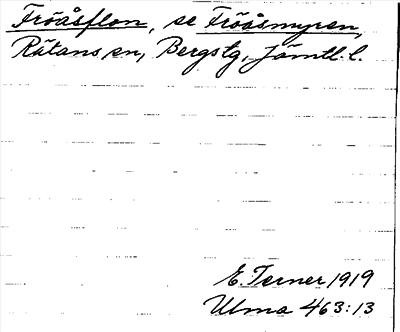 Fröåsflon, se Fröåsmyren,
Rätans sn, Bergs tg, Jämtl. l.
E. Terner 1919
Ulma 463:13